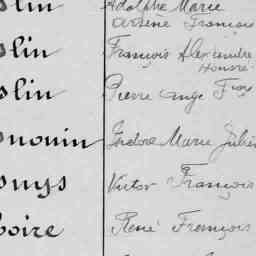 slin Adolphe Marie
Arsène François
slin François Alexandre
Honoré
slin Pierre Ange
nouin Isidore Marie Julien
nuys Victor François
boire René François